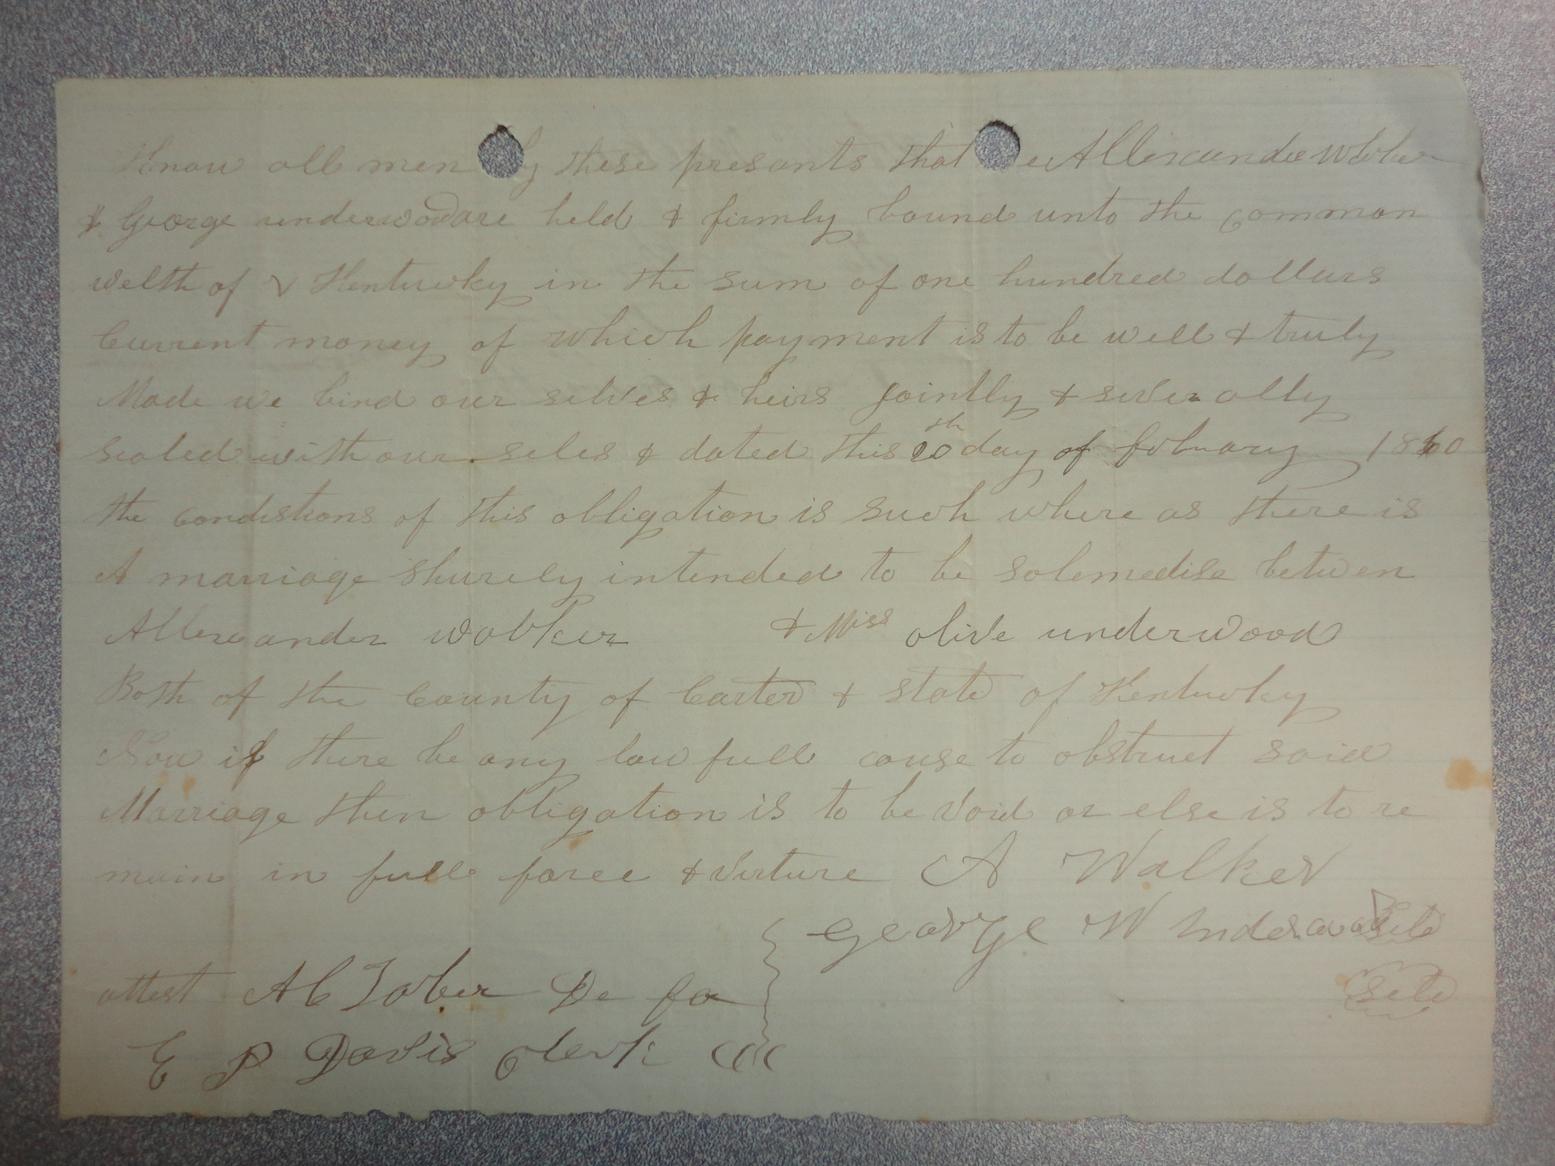 Know all men by these presants that we Allexander Wolker
& George underwood are held & firmly bound unto the common
welth of Kentucky in the sum of one hundred dollars
Current money of which payment is to be well & truly
Made we bind our selves & heirs Jointly & severally
sealed with our seles & dated this 20th day of february 1860
the condistions of this obligation is such where as there is
A marriage shurely intended to be solemedise betwen
Allexander wolker & Miss olive underwood
Both of the County of Carter & state of Kentucky
Now if there be any law full cause to obstruct said
Marriage then obligation is to be void or else is to re
main in full force & virture A Walker
George W Underwood Sele
attest A C Tober De for Sele
E P Davis Clerk